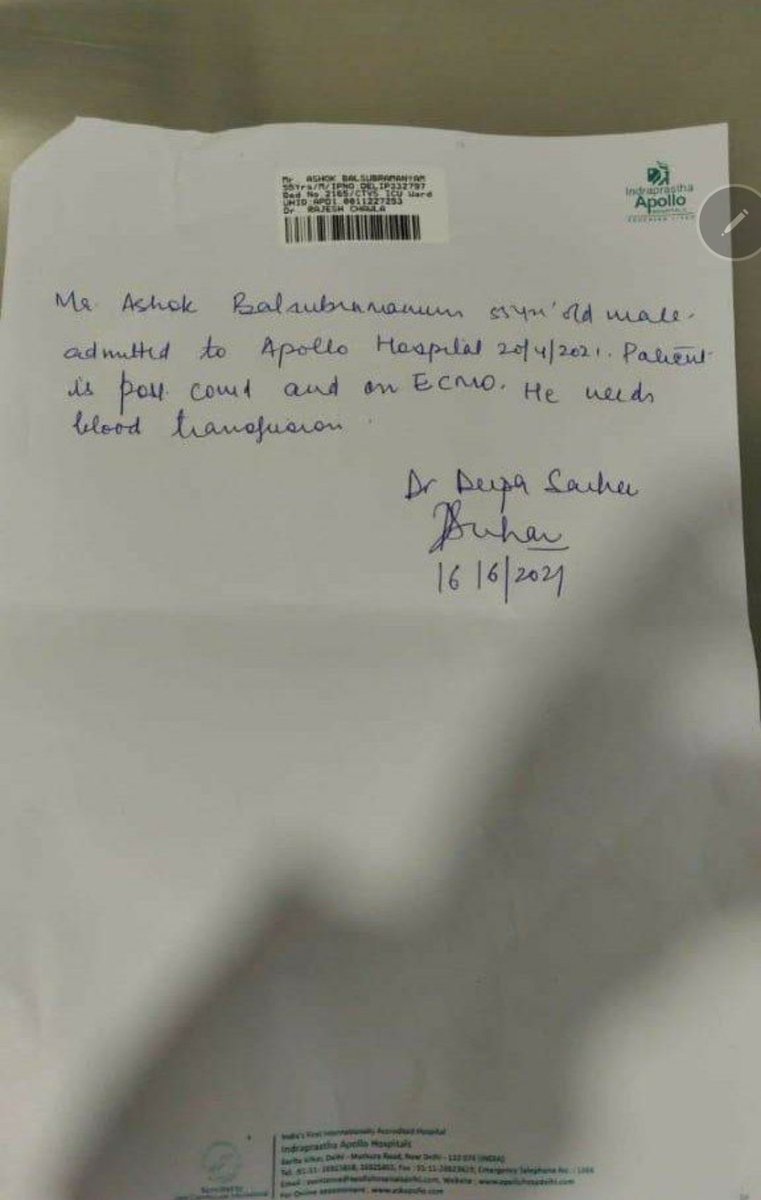 Mr ASHOK BALSUBRAMANYAM
55Yrs/M/IPNO DELIP332797
Bed No 2165/CTVS ICU Ward
UHID APD1.0011227253
Dr. RAJESH CHAWLA
Indraprastha
Apollo
HOSPITALS
Mr. Ashok Balsubramanium 55yrs' old male
admitted to Apollo Hospital 20/4/2021. Patient
is post covid and on ECMO. He needs
blood transfusion.
Dr Deepa
16/6/2021
India's First Internationally Accredited Hospital
Indraprastha Apollo Hospitals
Sarita Vihar, Delhi - Mathura Road, New Delhi - 110 076 (INDIA)
Emergency Telephone No. : 1066
For Online appointment : www.askapollo.com